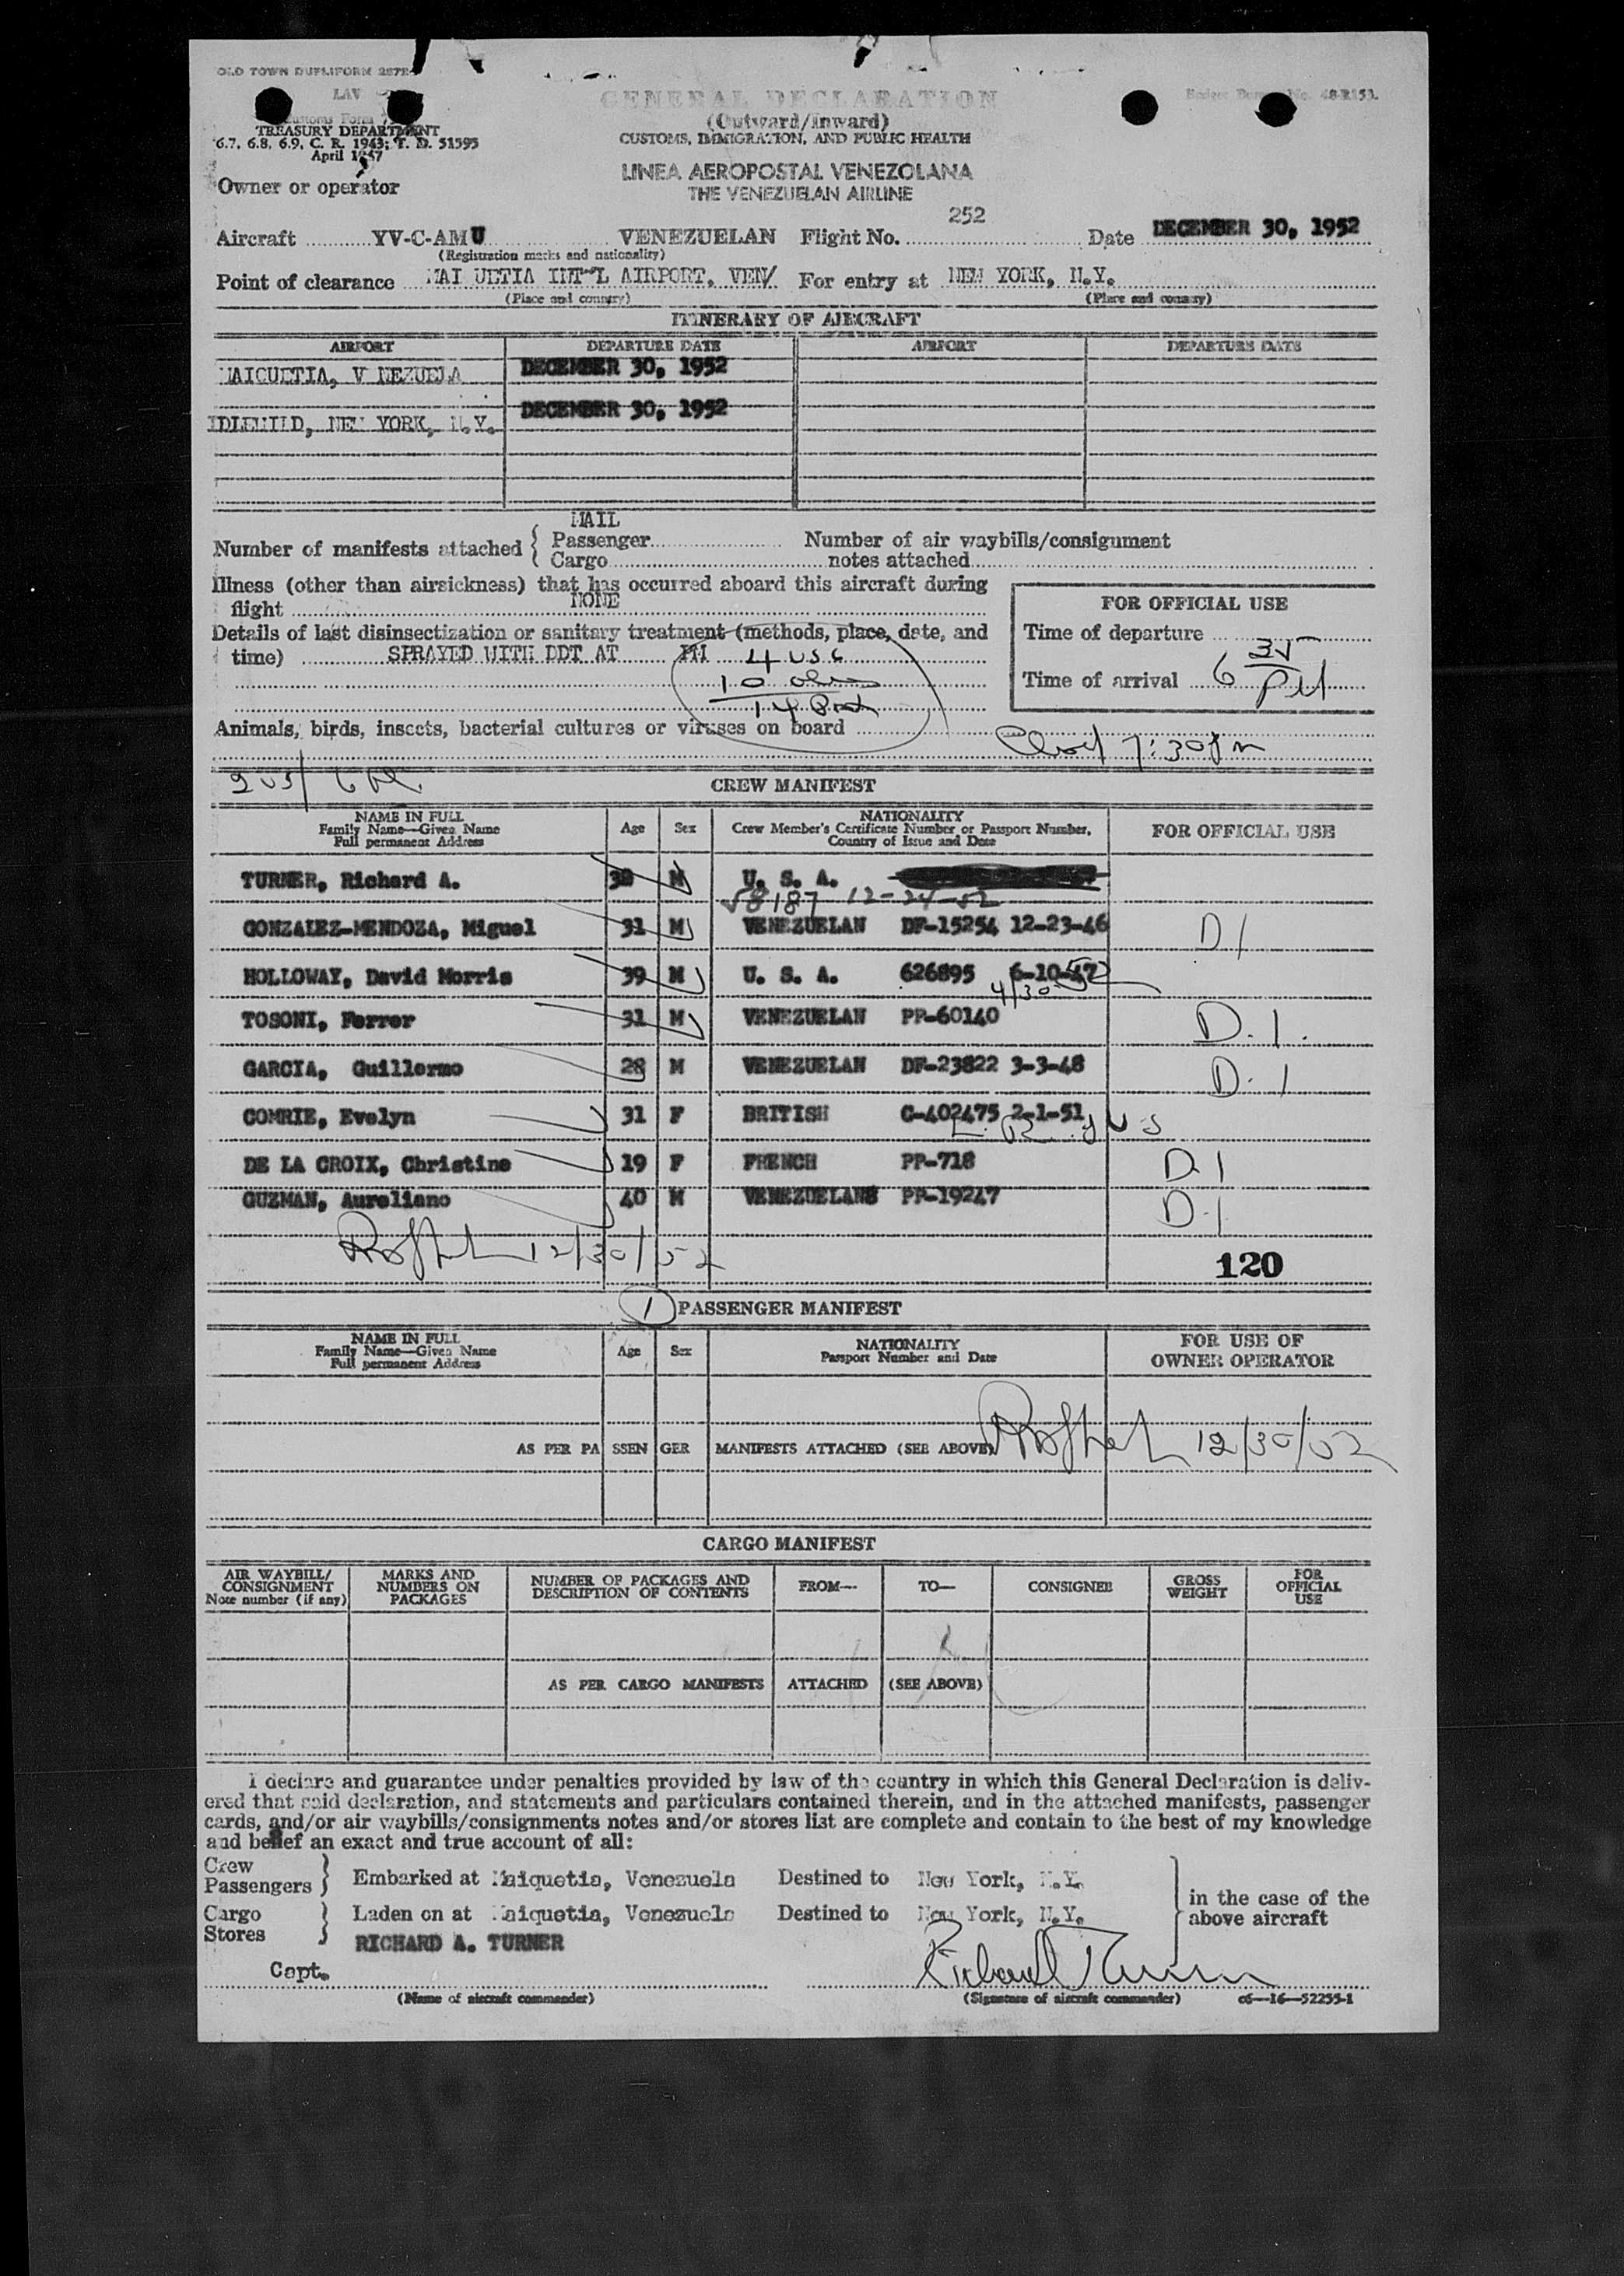 OLD TOWN DUPLIFORM 2872
LAV
Customs Form
TREASURY DEPARTMENT
6.7, 6.8, 6.9, C. R. 1943; T. D. 51595
April 1947
GENERAL DECLARATION
(Outward/Inward)
CUSTOMS, IMMIGRATION, AND PUBLIC HEALTH
LINEA AEROPOSTAL VENEZOLANA
THE VENEZUELAN AIRLINE
Budget Bureau No. 48-R153.
Owner or operator
Aircraft YV-C-AMU VENEZUELAN Flight No. 252 Date DECEMBER 30, 1952
(Registration marks and nationality)
Point of clearance MAI UETIA INT'L AIRPORT, VEN/ For entry at NEW YORK, N.Y.
(Place and country) (Place and country)
ITINERARY OF AIRCRAFT
AIRPORT DEPARTURE DATE AIRPORT DEPARTURE DATE
MAIQUETIA, V NEZUELA DECEMBER 30, 1952
IDLEWILD, NEW YORK, N.Y. DECEMBER 30, 1952
MAIL
Number of manifests attached { Passenger Number of air waybills/consignment
Cargo notes attached
Illness (other than airsickness) that has occurred aboard this aircraft during
flight NONE
Details of last disinsectization or sanitary treatment (methods, place, date, and
time) SPRAYED WITH DDT AT PM 4 USC
10
14
FOR OFFICIAL USE
Time of departure
Time of arrival 6 35 PM
Animals, birds, insects, bacterial cultures or viruses on board
7:30 pm
2 US/
CREW MANIFEST
NAME IN FULL
Family Name—Given Name
Full permanent Address
Age Sex
NATIONALITY
Crew Member's Certificate Number or Passport Number,
Country of Issue and Date
FOR OFFICIAL USE
TURNER, Richard A. 38 M U. S. A.
58187 12-24-52
GONZALEZ-MENDOZA, Miguel 31 M VENEZUELAN DF-15254 12-23-46 D 1
HOLLOWAY, David Morris 39 M U. S. A. 626895 6-10-47 52
4/30
TOSONI, Ferrer 31 M VENEZUELAN PP-60140 D. 1.
GARCIA, Guillermo 28 M VENEZUELAN DF-23822 3-3-48 D. 1
COMRIE, Evelyn 31 F BRITISH C-402475 2-1-51
DE LA CROIX, Christine 19 F FRENCH PP-718 D. 1
GUZMAN, Aureliano 40 M VENEZUELANS PP-19247 D-1
12/30/52
120
1 PASSENGER MANIFEST
NAME IN FULL
Family Name—Given Name
Full permanent Address
Age Sex
NATIONALITY
Passport Number and Date
FOR USE OF
OWNER OPERATOR
AS PER PA SSEN GER MANIFESTS ATTACHED (SEE ABOVE) 12/30/52
CARGO MANIFEST
AIR WAYBILL/
CONSIGNMENT
Note number (if any)
MARKS AND
NUMBERS ON
PACKAGES
NUMBER OF PACKAGES AND
DESCRIPTION OF CONTENTS
FROM— TO— CONSIGNEE
GROSS
WEIGHT
FOR
OFFICIAL
USE
AS PER CARGO MANIFESTS ATTACHED (SEE ABOVE)
I declare and guarantee under penalties provided by law of the country in which this General Declaration is deliv-
ered that said declaration, and statements and particulars contained therein, and in the attached manifests, passenger
cards, and/or air waybills/consignments notes and/or stores list are complete and contain to the best of my knowledge
and belief an exact and true account of all:
Crew
Passengers } Embarked at Maiquetia, Venezuela Destined to New York, N.Y.
Cargo
Stores } Laden on at Maiquetia, Venezuela Destined to New York, N.Y.
} in the case of the
above aircraft
RICHARD A. TURNER
Capt. Richard Turner
(Name of aircraft commander) (Signature of aircraft commander) c6—16—52255-1